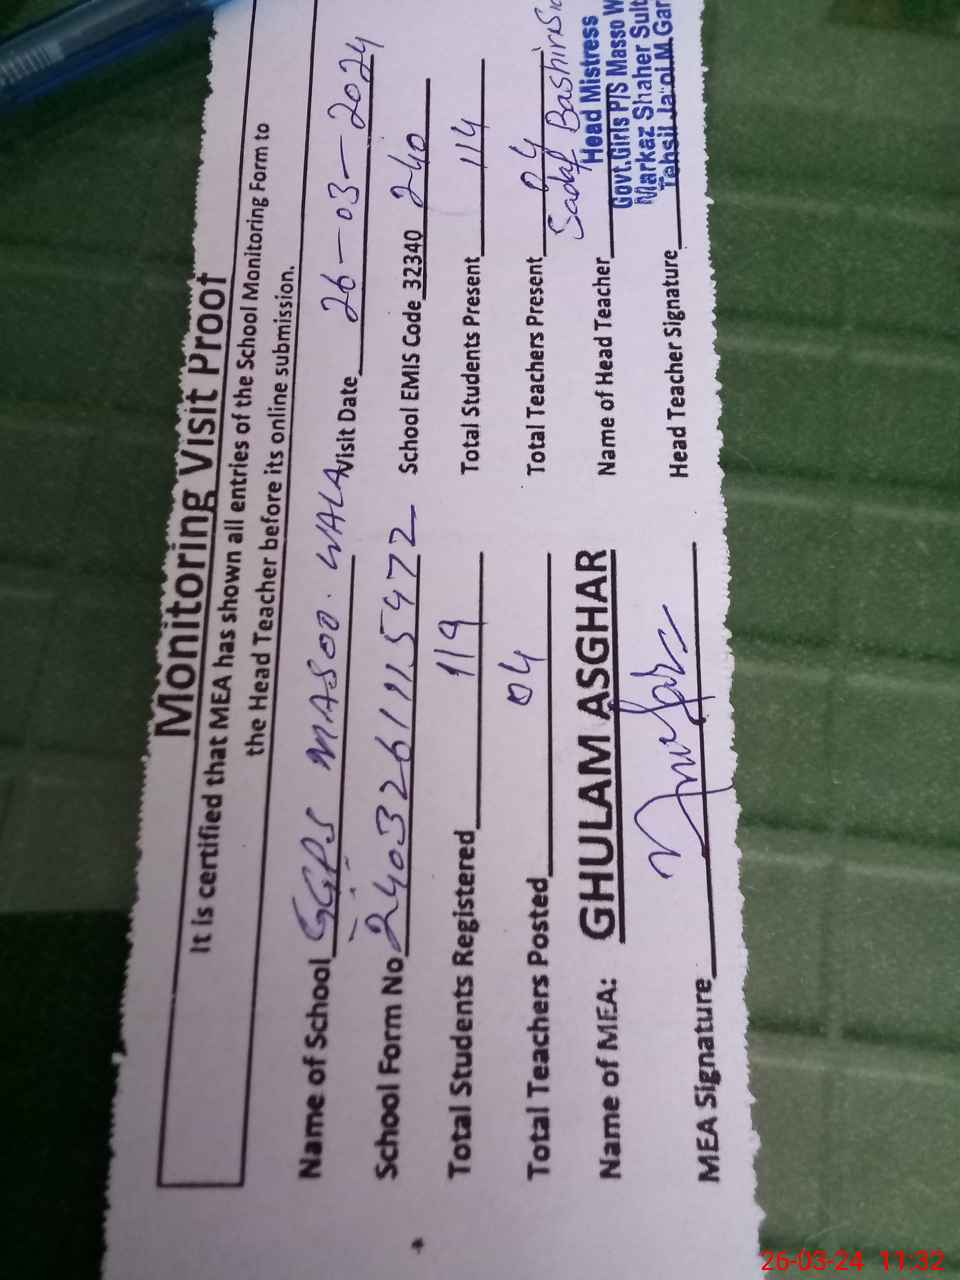 Monitoring Visit Proof
It is certified that MEA has shown all entries of the School Monitoring Form to
the Head Teacher before its online submission.
Name of School GGPS MASOO WALA Visit Date 26-03-2024
School Form No 2403261115972 School EMIS Code 32340 240
Total Students Registered 119 Total Students Present 114
Total Teachers Posted 04 Total Teachers Present 04
Name of MEA: GHULAM ASGHAR Name of Head Teacher Sadaf Bashir
MEA Signature Head Teacher Signature
Head Mistress
Govt.Girls P/S Masso W
Markaz Shaher Sult
Tehsil Jatoi M Gar
26-03-24 11:32